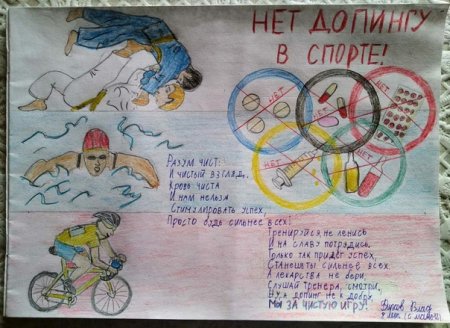 НЕТ ДОПИНГУ
В СПОРТЕ!
НЕТ
НЕТ
НЕТ
НЕТ
НЕТ
Разум чист:
И чистый взгляд,
Кровь чиста
И нам нельзя
Стимулировать успех,
Просто будь сильнее всех!
Тренируйся, не ленись
И на славу потрудись,
Только так придёт успех,
Станешь ты сильнее всех.
А лекарства не бери
Слушай тренера, смотри,
Ну а допинг не к добру,
Мы за чистую игру!
Влад
(с мамой)